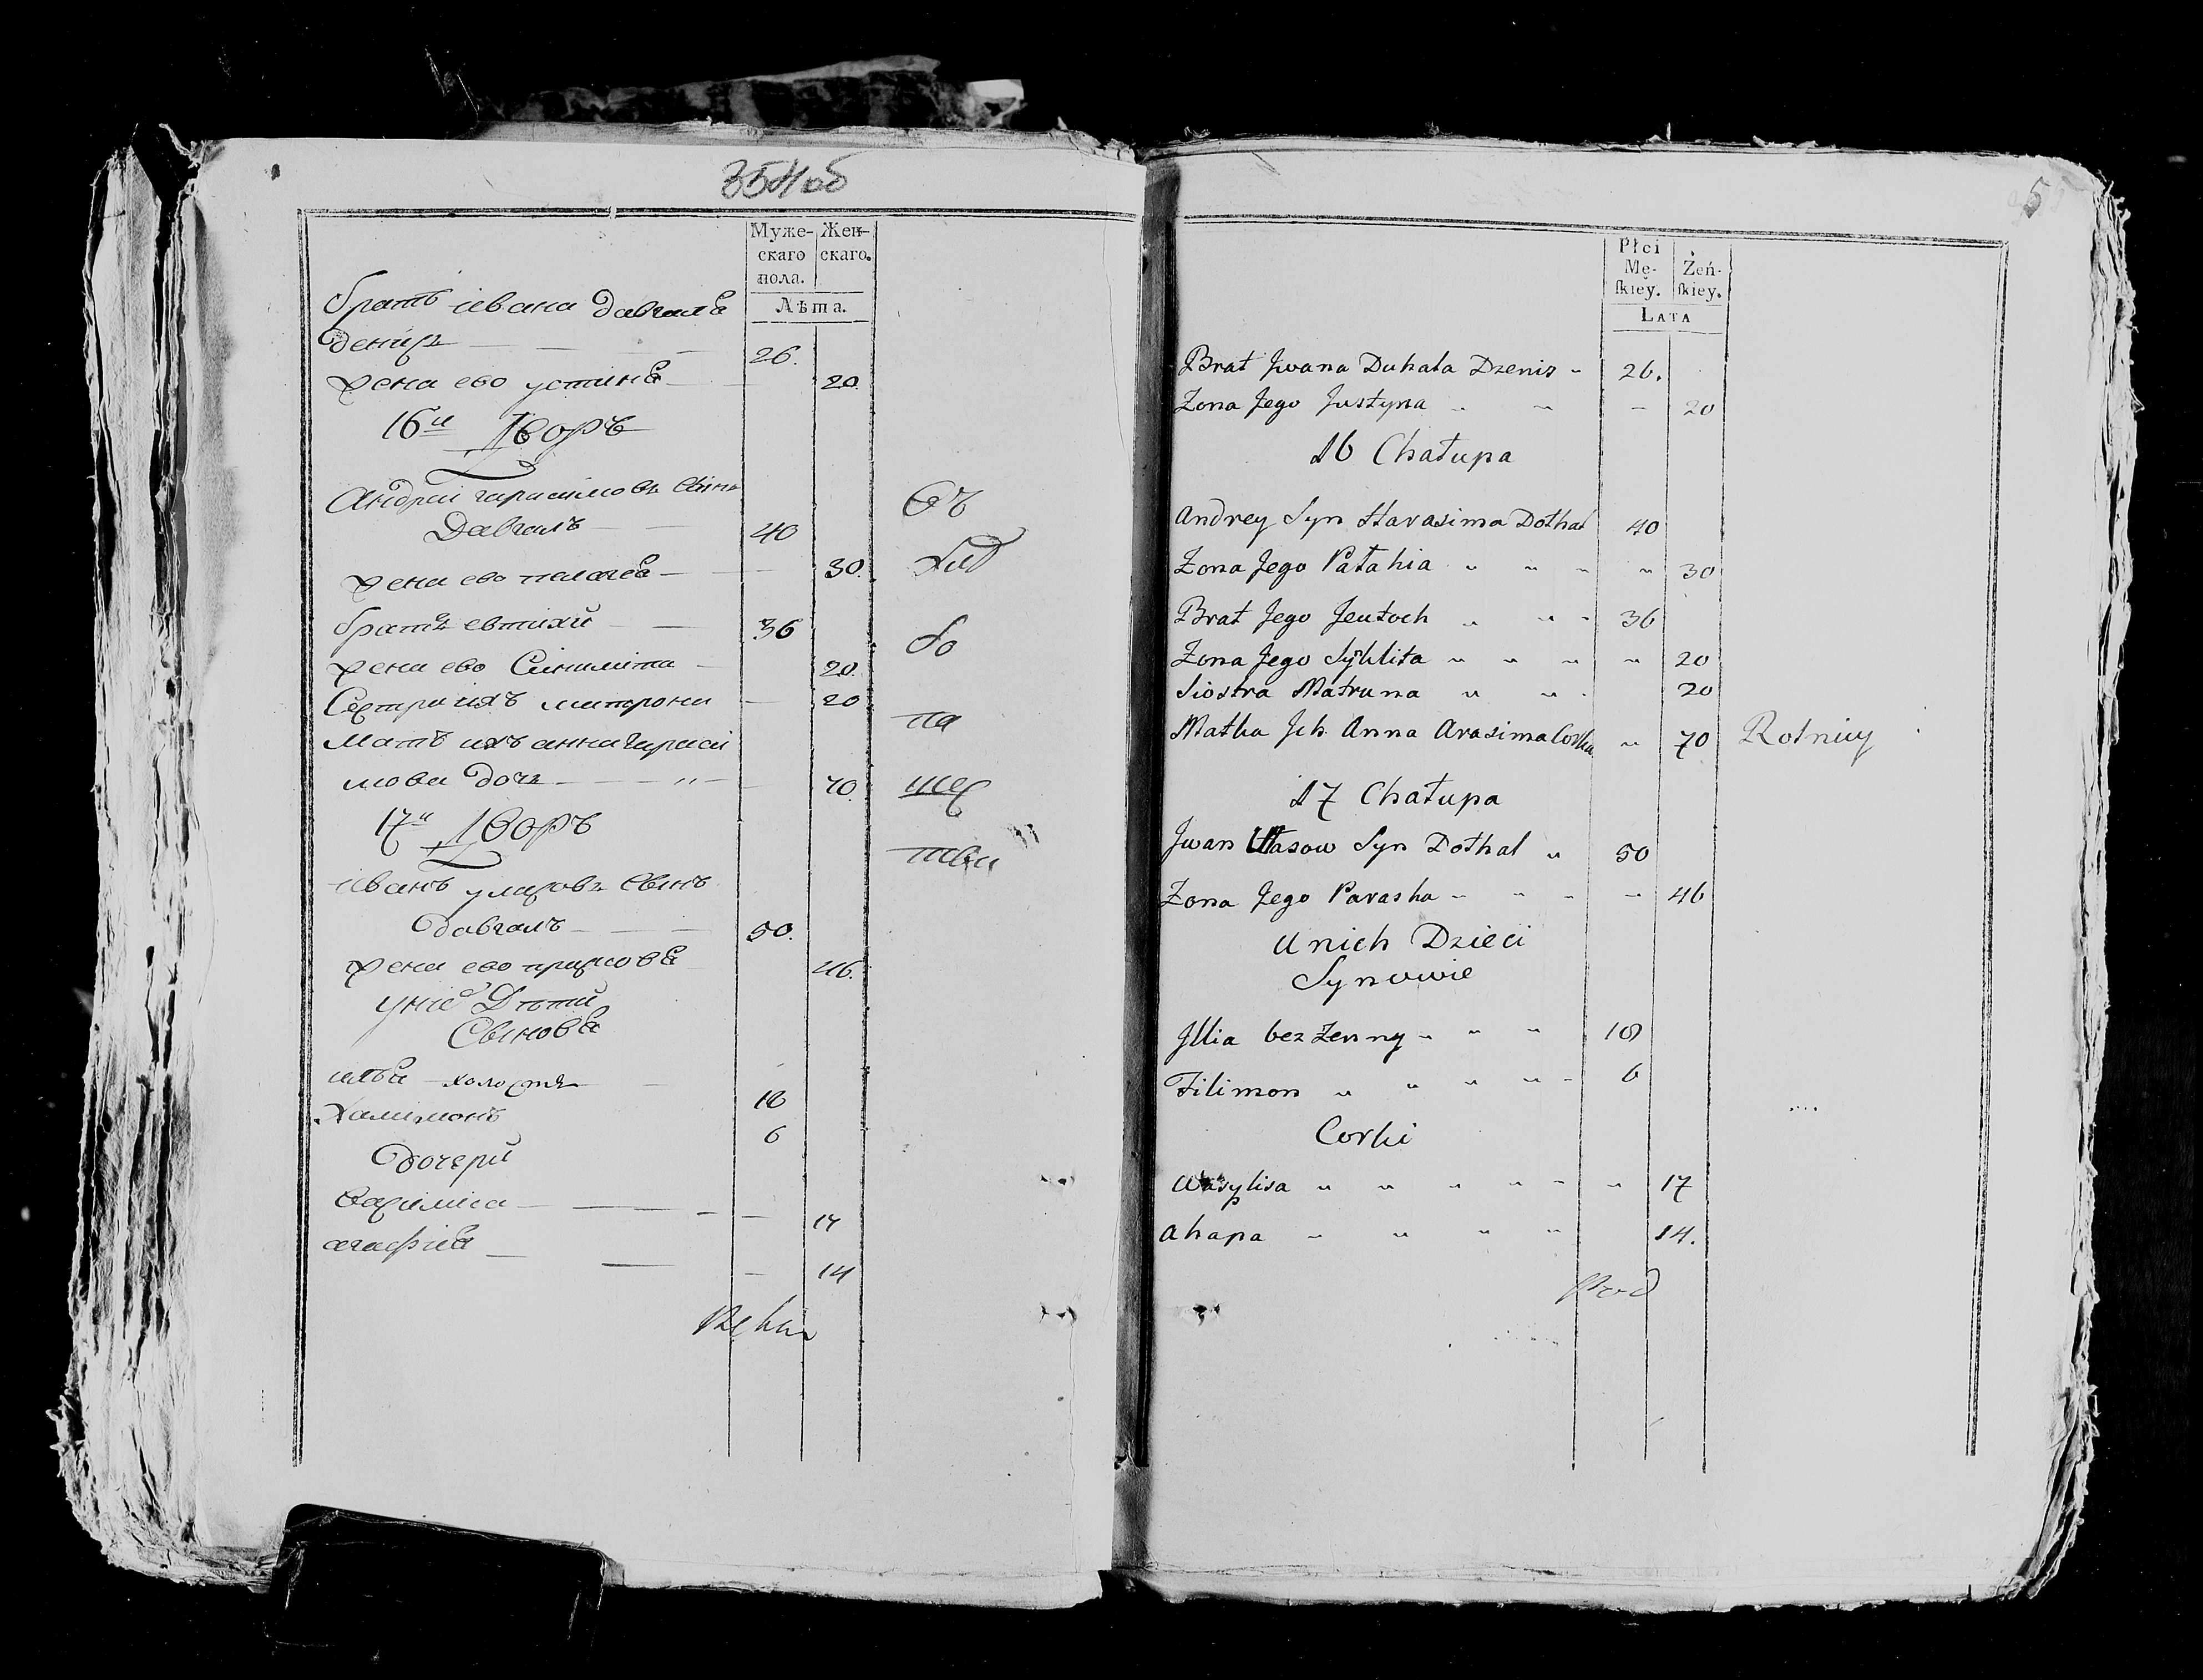 354 об
Муже-скаго пола. Жен-скаго.
Лѣта.
братъ ивана давгаля
дениз — 26.
жена ево устинья — 20.
16й Дворъ
Андрей гарасимовъ синъ
Давгаль — 40
жена ево пелагея — 30.
братъ евтихи — 36
жена ево — 20.
Сестра ихъ матрона — 20
мать ихъ анна гараси
мова дочь — 70.
17й Дворъ
иванъ уласовъ синъ
давгаль — 50.
жена ево — 46.
уних Дѣти
Синовя
илья — холостъ — 18
Халимонъ 6
дочери
Васили́са — 17
агафия — 14
5
Płci Mę-skiey. Żeń-skiey.
LATA
Brat Jwana Duhala Dzenis 26.
Zona Jego Justyna — 20
16 Chałupa
Andrey Syn Harasima Dołhal 40
Zona Jego Pałahia 30
Brat Jego Jeutoch 36
Zona Jego 20
Siostra Matruna 20
Matka Jch Anna Arasima Corka 70 Rolnicy
17 Chałupa
Jwan Ułasow Syn Dołhal 50
Zona Jego Paraska 46
U nich Dzieci
Synowie
Jllia bezżenny 18
Filimon 6
Corki
Wasylisa 17
Ahapa 14.